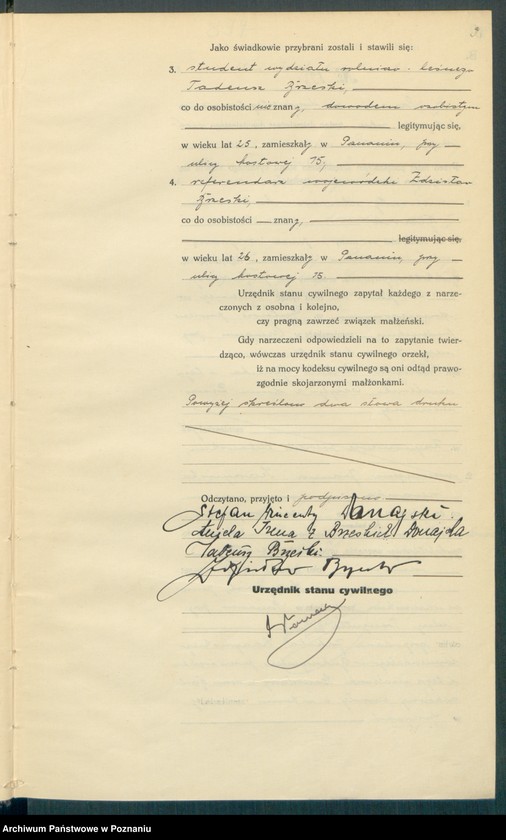 3
Jako świadkowie przybrani zostali i stawili się:
3. student wydziału rolniczo-leśnego
Tadeusz Brzeski,
co do osobistości nieznany, dowodem osobistym
legitymując się,
w wieku lat 25, zamieszkały w Poznaniu, przy
ulicy 15,
4. referendarz wojewódzki Zdzisław
Brzeski,
co do osobistości — znany,
legitymując się,
w wieku lat 26, zamieszkały w Poznaniu, przy
ulicy 15.
Urzędnik stanu cywilnego zapytał każdego z narze-
czonych z osobna i kolejno,
czy pragną zawrzeć związek małżeński.
Gdy narzeczeni odpowiedzieli na to zapytanie twier-
dząco, wówczas urzędnik stanu cywilnego orzekł,
iż na mocy kodeksu cywilnego są oni odtąd prawo-
zgodnie skojarzonymi małżonkami.
Powyżej skreślono dwa słowa druku
Odczytano, przyjęto i podpisano
Stefan Wincenty
Aniela Irena z Brzeskich
Tadeusz Brzeski.
Zdzisław Brzeski
Urzędnik stanu cywilnego
Archiwum Państwowe w Poznaniu